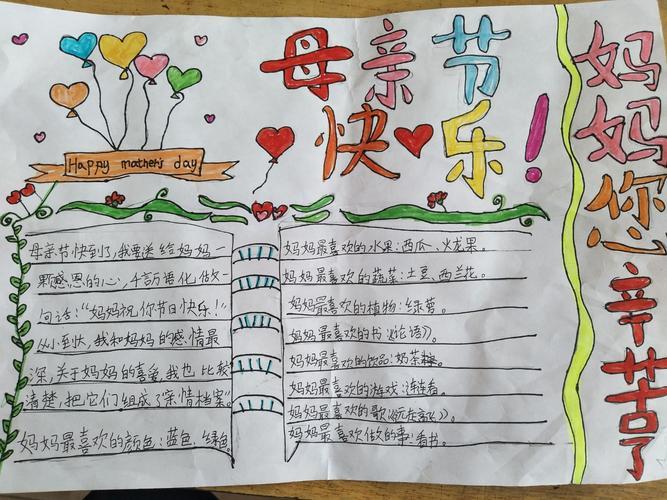 母亲节
快乐!
妈妈您辛苦了
Happy mother's day
母亲节快到了,我要送给妈妈一
颗感恩的心,千言万语化做一
句话:“妈妈祝你节日快乐!”
从小到大,我和妈妈的感情最
深,关于妈妈的喜爱,我也比较
清楚,把它们组成了亲情档案。
妈妈最喜欢的颜色:蓝色、绿色。
妈妈最喜欢的水果:西瓜、火龙果。
妈妈最喜欢的蔬菜:土豆、西兰花。
妈妈最喜欢的植物:绿萝。
妈妈最喜欢的书《论语》。
妈妈最喜欢的饮品:奶茶
妈妈最喜欢的游戏:连连看。
妈妈最喜欢的歌
妈妈最喜欢做的事:看书。